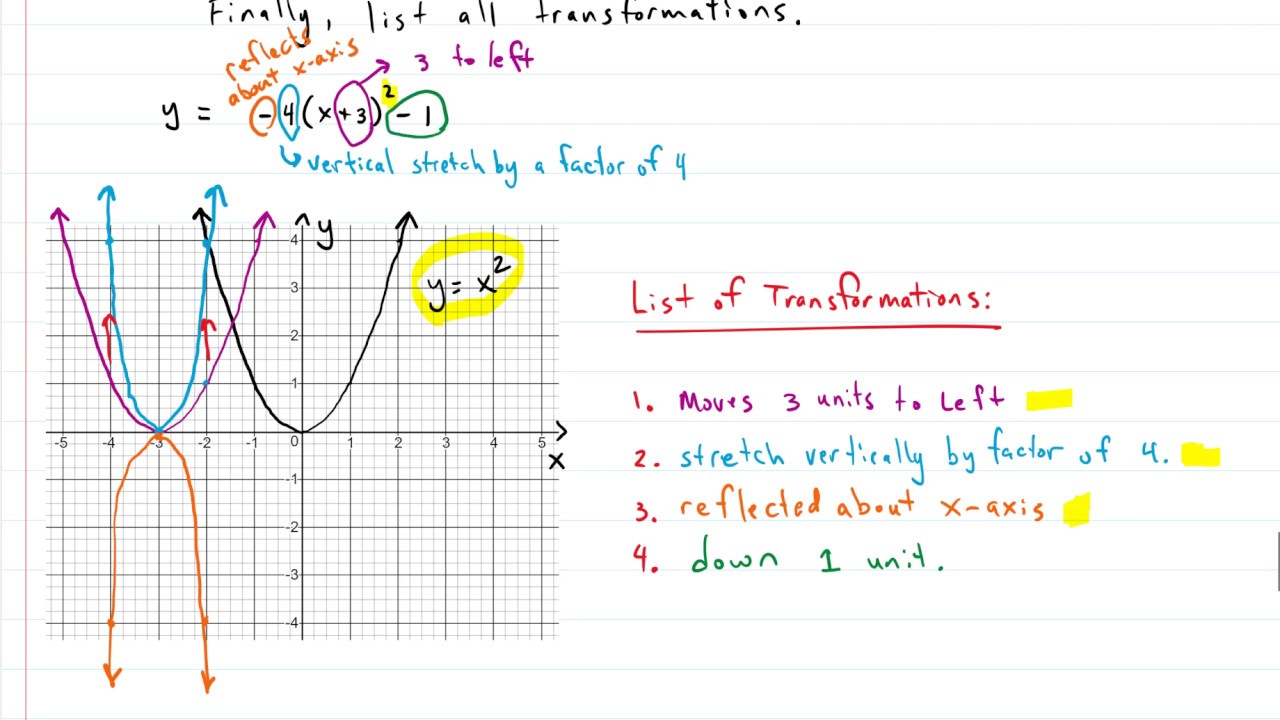 Finally, list all transformations.
reflects
about x-axis
3 to left
y = -4(x+3)² - 1
vertical stretch by a factor of 4
y
4
y = x²
3
2
1
-5 -4 -3 -2 -1 0 1 2 3 4 5
x
-1
-2
-3
-4
List of Transformations:
1. Moves 3 units to Left
2. stretch vertically by factor of 4.
3. reflected about x-axis
4. down 1 unit.